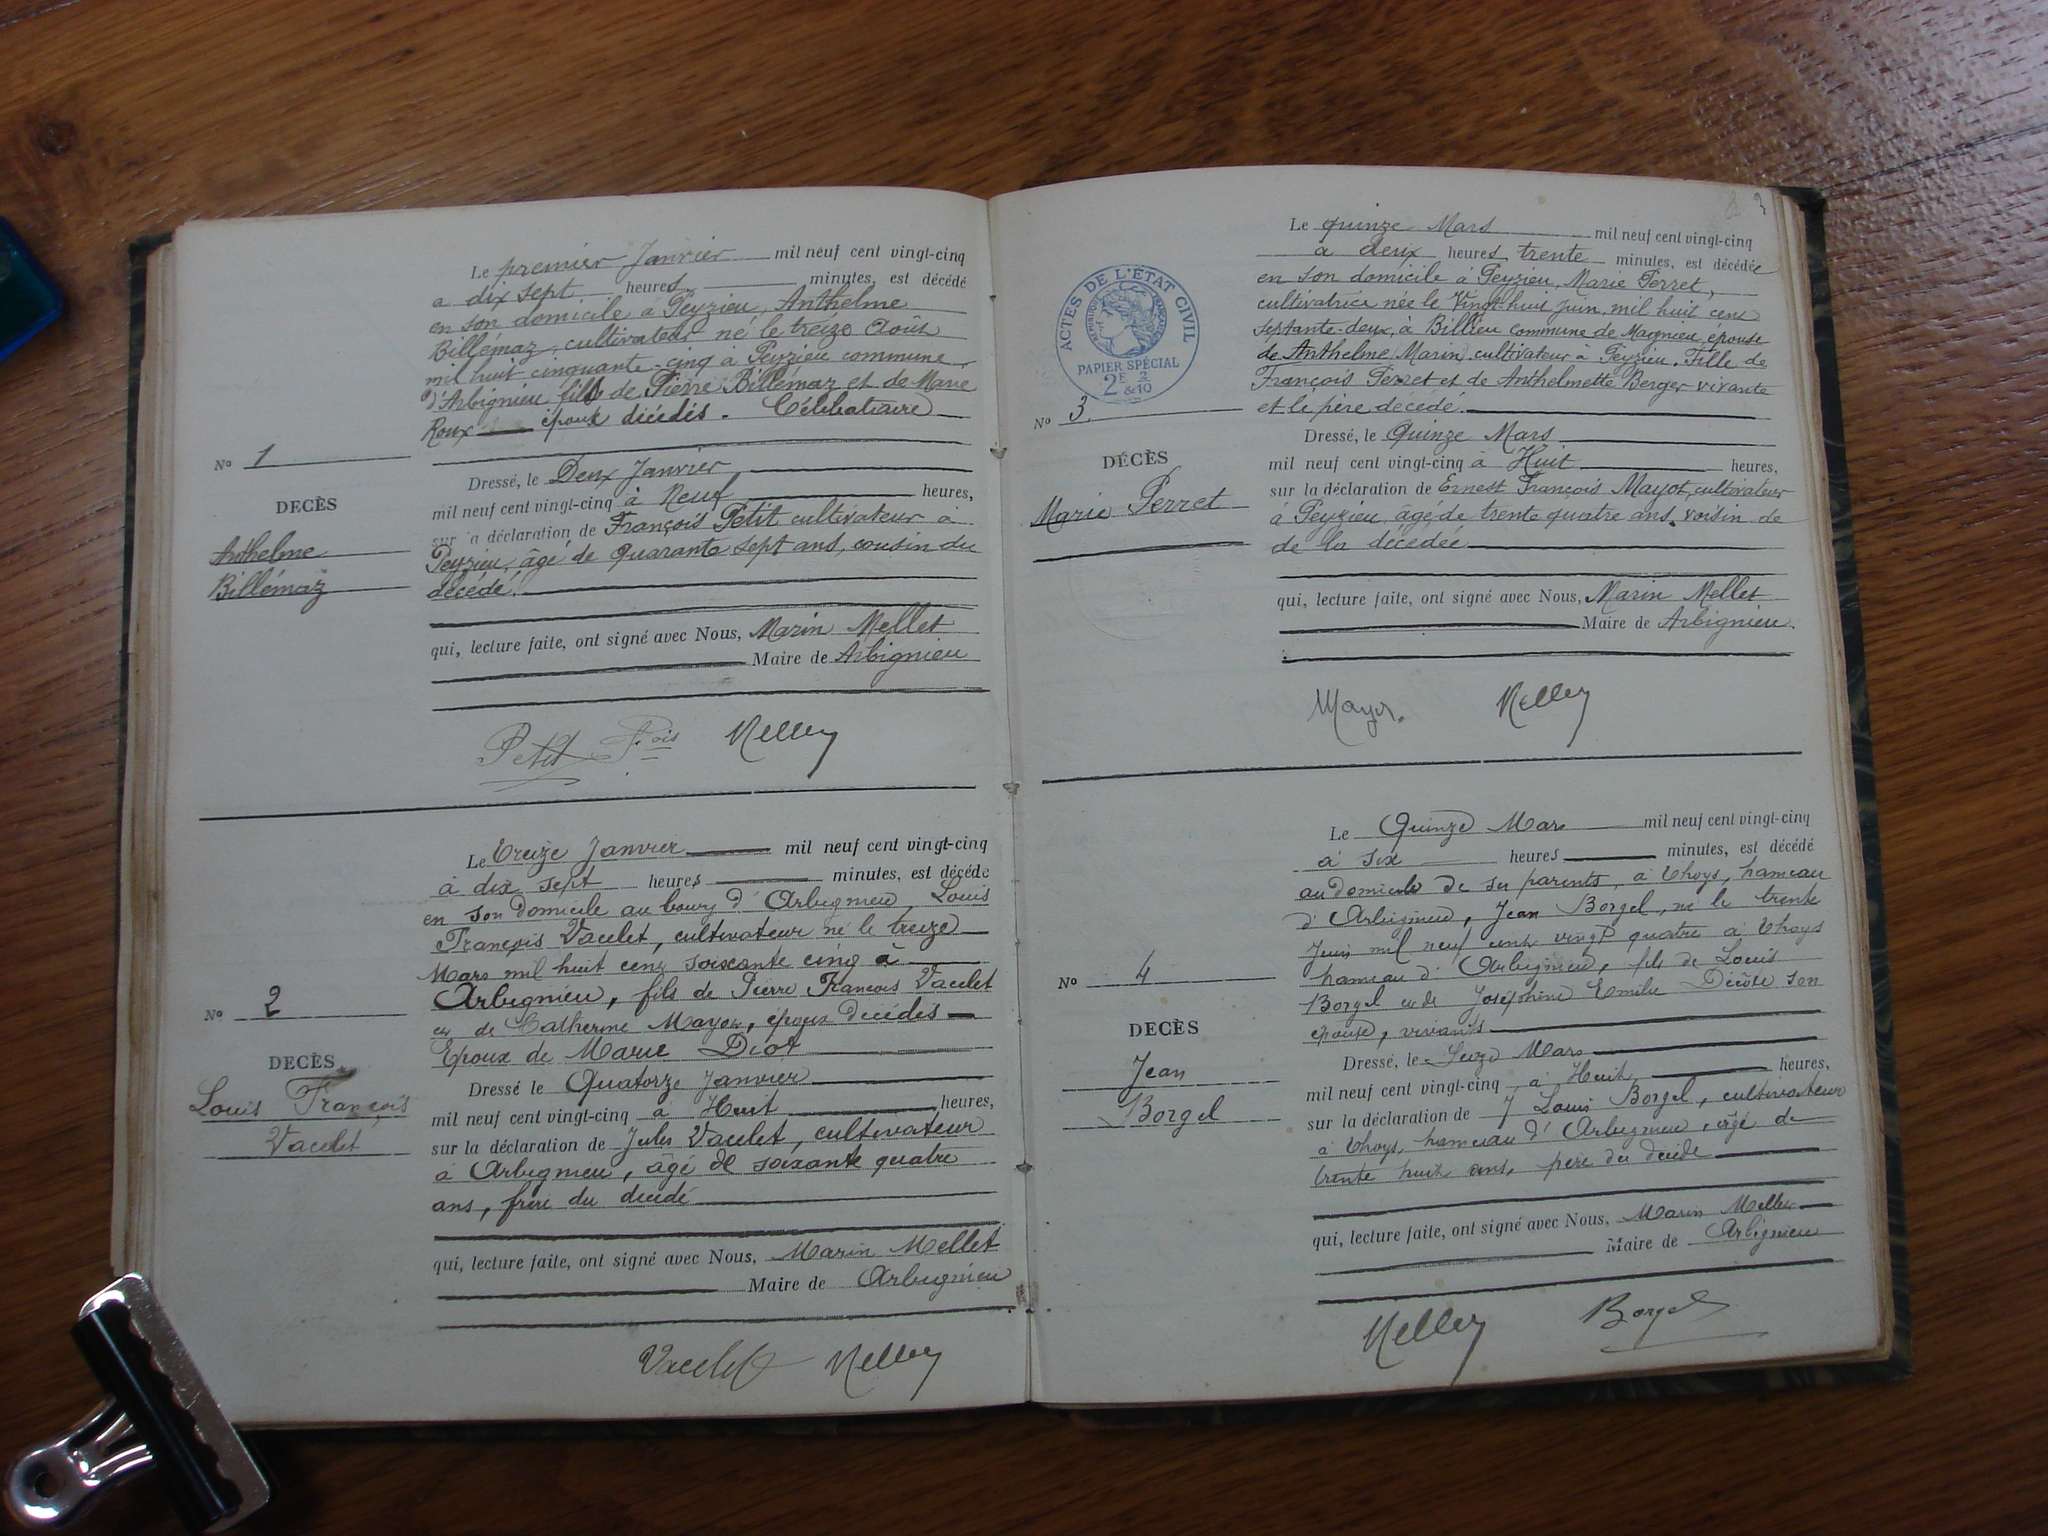 Le premier Janvier mil neuf cent vingt-cinq
a dix sept heures minutes, est décédé
en son domicile à Peyzieu, Anthelme
Billémaz, cultivateur né le treize Août
mil huit cinquante-cinq à Peyzieu commune
d'Arbignieu fils de Pierre Billémaz et de Marie
Roux époux décédés. Célibataire
No 1
DECÈS
Anthelme
Billémaz
Dressé, le Deux Janvier
mil neuf cent vingt-cinq à Neuf heures,
sur a déclaration de François Petit cultivateur à
Peyzieu, âgé de Quarante sept ans, cousin du
décédé.
qui, lecture faite, ont signé avec Nous, Marin Mellet
Maire de Arbignieu
Petit Fois Mellet
Le Treize Janvier mil neuf cent vingt-cinq
à dix sept heures minutes, est décédé
en son domicile au bourg d'Arbignieu, Louis
François Vacelet, cultivateur né le treize
Mars mil huit cent soixante cinq à
Arbignieu, fils de Pierre François Vacelet
et de Catherine Mayot, époux décédés
Epoux de Marie Diot
No 2
DECÈS
Louis François
Vacelet
Dressé le Quatorze Janvier
mil neuf cent vingt-cinq à Huit heures,
sur la déclaration de Jules Vacelet, cultivateur
à Arbignieu, âgé de soixante quatre
ans, frère du décédé
qui, lecture faite, ont signé avec Nous, Marin Mellet
Maire de Arbignieu
Vacelet Mellet
3
Le quinze Mars mil neuf cent vingt-cinq
à deux heures trente minutes, est décédée
en son domicile à Peyzieu, Marie Perret,
cultivatrice née le Vingt-huit Juin mil huit cent
septante-deux, à Billieu commune de Magnieu, épouse
de Anthelme Marin cultivateur à Peyzieu. Fille de
François Perret et de Anthelmette Berger vivante
et le père décédé
ACTES DE L'ÉTAT CIVIL
RÉPUBLIQUE FRANÇAISE
PAPIER SPÉCIAL
2E 2/10
No 3
DÉCÈS
Marie Perret
Dressé, le Quinze Mars
mil neuf cent vingt-cinq à Huit heures,
sur la déclaration de Ernest François Mayot, cultivateur
à Peyzieu, âge de trente quatre ans, voisin de
de la décédée
qui, lecture faite, ont signé avec Nous, Marin Mellet
Maire de Arbignieu.
Mayot. Mellet
Le Quinze Mars mil neuf cent vingt-cinq
à six heures minutes, est décédé
au domicile de ses parents, à Thoys, hameau
d'Arbignieu, Jean Borgel, né le trente
Juin mil neuf cent vingt quatre à Thoys
hameau d'Arbignieu, fils de Louis
Borgel et de Joséphine Emilie Décôte son
épouse, vivants
No 4
DECÈS
Jean
Borgel
Dressé, le Seize Mars
mil neuf cent vingt-cinq à Huit heures,
sur la déclaration de J Louis Borgel, cultivateur
à Thoys, hameau d'Arbignieu, âgé de
trente huit ans, père du décédé
qui, lecture faite, ont signé avec Nous, Marin Mellet
Maire de Arbignieu
Mellet Borgel